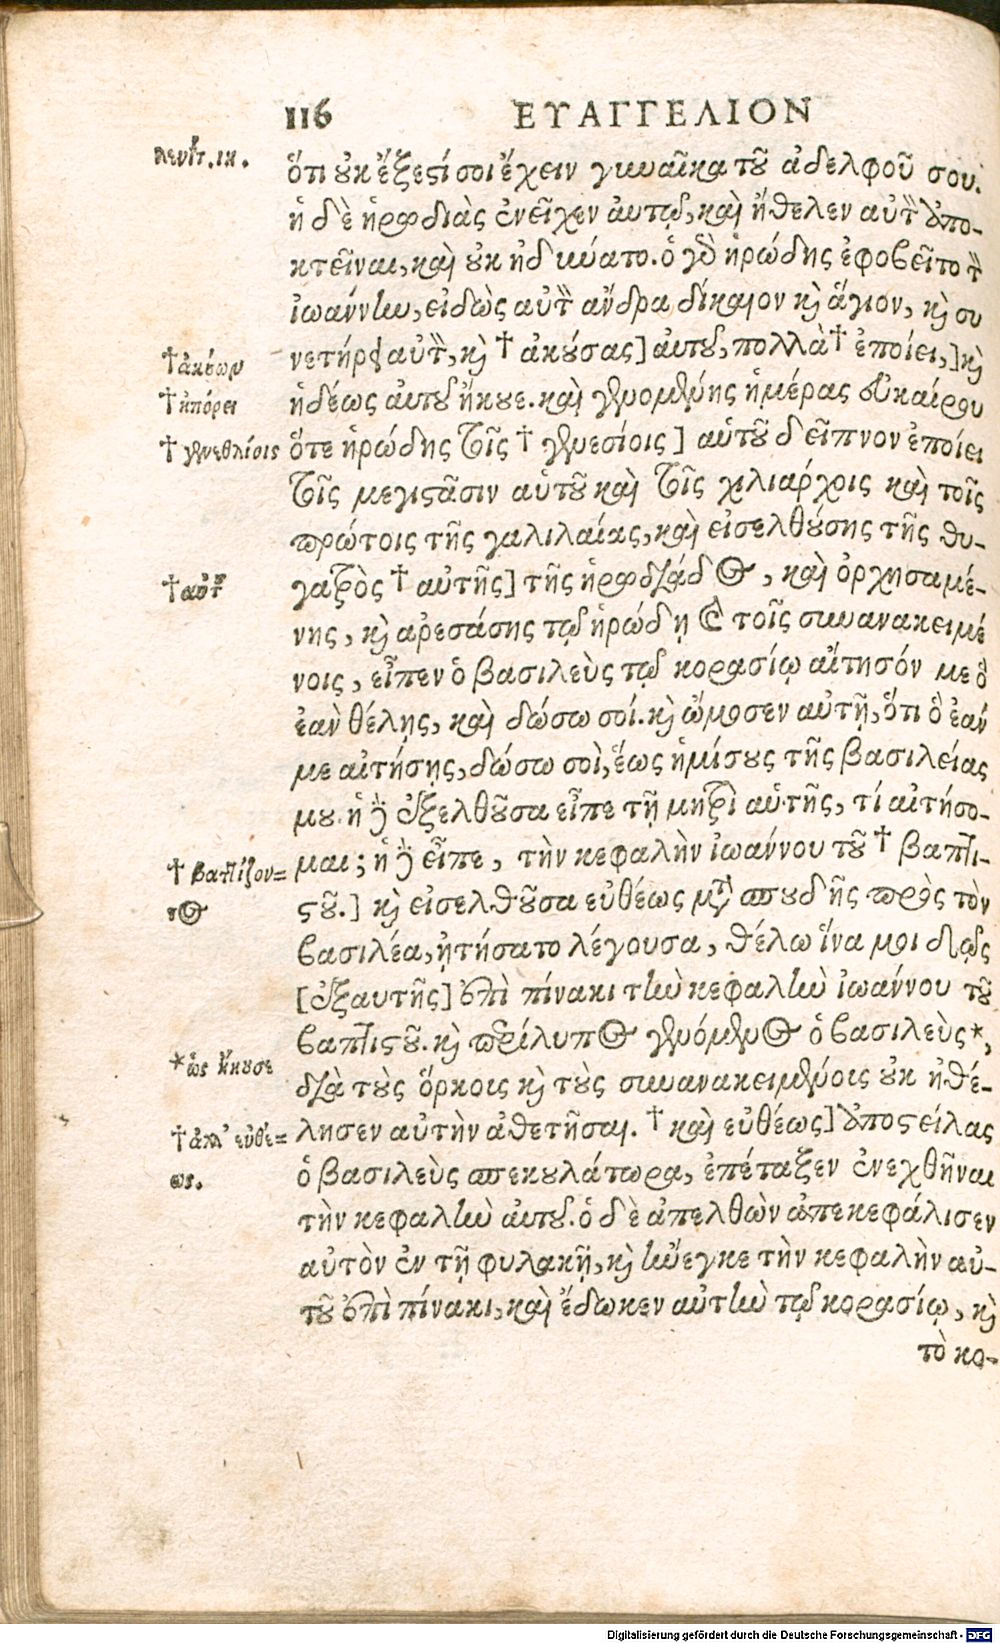 116 ΕΥΑΓΓΕΛΙΟΝ
λευϊτ. ιη.
ὅτι οὐκ ἔξεστί σοι ἔχειν γυναῖκα τοῦ ἀδελφοῦ σου.
ἡ δὲ ἡρωδιὰς ἐνεῖχεν αὐτῷ, καὶ ἤθελεν αὐτὸν ἀπο-
κτεῖναι, καὶ οὐκ ἠδύνατο. ὁ γὰρ ἡρώδης ἐφοβεῖτο τὸν
ἰωάννην, εἰδὼς αὐτὸν ἄνδρα δίκαιον καὶ ἅγιον, καὶ συ
νετήρει αὐτὸν, καὶ † ἀκούσας] αὐτοῦ, πολλὰ † ἐποίει,] καὶ
† ἀκούων
ἡδέως αὐτοῦ ἤκουε. καὶ γενομένης ἡμέρας εὐκαίρου
† ἠπόρει
ὅτε ἡρώδης τοῖς † γενεσίοις] αὑτοῦ δεῖπνον ἐποίει
† γενεθλίοις
τοῖς μεγιστᾶσιν αὑτοῦ καὶ τοῖς χιλιάρχοις καὶ τοῖς
πρώτοις τῆς γαλιλαίας, καὶ εἰσελθούσης τῆς θυ-
γατρὸς † αὐτῆς] τῆς ἡρωδιάδος, καὶ ὀρχησαμέ-
† αὐτοῦ
νης, καὶ ἀρεσάσης τῷ ἡρώδῃ καὶ τοῖς συνανακειμέ
νοις, εἶπεν ὁ βασιλεὺς τῷ κορασίῳ αἴτησόν με ὃ
ἐὰν θέλῃς, καὶ δώσω σοί. καὶ ὤμοσεν αὐτῇ, ὅτι ὃ ἐάν
με αἰτήσῃς, δώσω σοὶ, ἕως ἡμίσους τῆς βασιλείας
μου. ἡ δὲ ἐξελθοῦσα εἶπε τῇ μητρὶ αὑτῆς, τί αἰτήσο-
μαι; ἡ δὲ εἶπε, τὴν κεφαλὴν ἰωάννου τοῦ † βαπτι-
† βαπτίζον=
στοῦ.] καὶ εἰσελθοῦσα εὐθέως μετὰ σπουδῆς πρὸς τὸν
τος
βασιλέα, ᾐτήσατο λέγουσα, θέλω ἵνα μοι δῷς
[ἐξαυτῆς] ἐπὶ πίνακι τὴν κεφαλὴν ἰωάννου τοῦ
βαπτιστοῦ. καὶ περίλυπος γενόμενος ὁ βασιλεὺς *,
* ὡς ἤκουσε
διὰ τοὺς ὅρκοις καὶ τοὺς συνανακειμένοις οὐκ ἠθέ-
λησεν αὐτὴν ἀθετῆσαι. † καὶ εὐθέως] ἀποστείλας
† ἀλλ' εὐθέ=
ὁ βασιλεὺς σπεκουλάτωρα, ἐπέταξεν ἐνεχθῆναι
ως.
τὴν κεφαλὴν αὐτοῦ. ὁ δὲ ἀπελθὼν ἀπεκεφάλισεν
αὐτὸν ἐν τῇ φυλακῇ, καὶ ἤνεγκε τὴν κεφαλὴν αὐ-
τοῦ ἐπὶ πίνακι, καὶ ἔδωκεν αὐτὴν τῷ κορασίῳ, καὶ
τὸ κο-
Digitalisierung gefördert durch die Deutsche Forschungsgemeinschaft - DFG